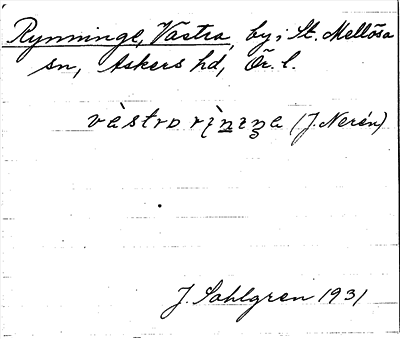 Rynninge, Västra, by i St. Mellösa
sn, Askers hd, Ör. l.
(J. Nerén)
J. Sahlgren 1931